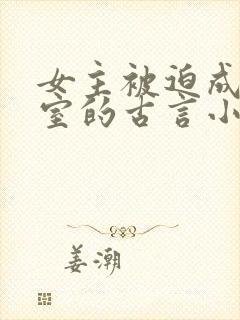 女主被迫成
室的古言小
姜潮